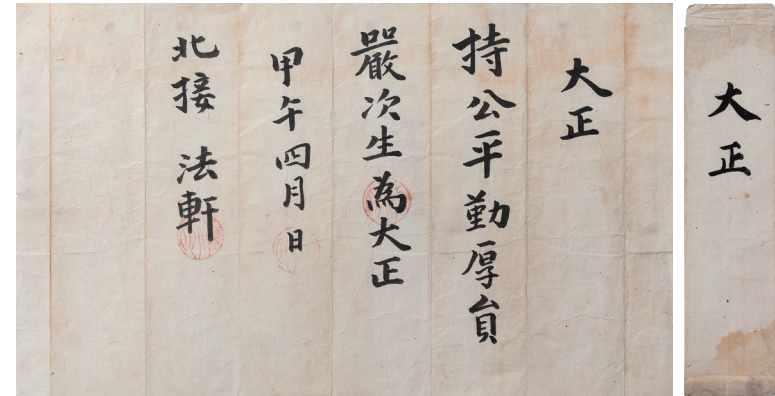 大正
持公平勤厚員
嚴次生為大正
甲午四月 日
北接 法軒
大正